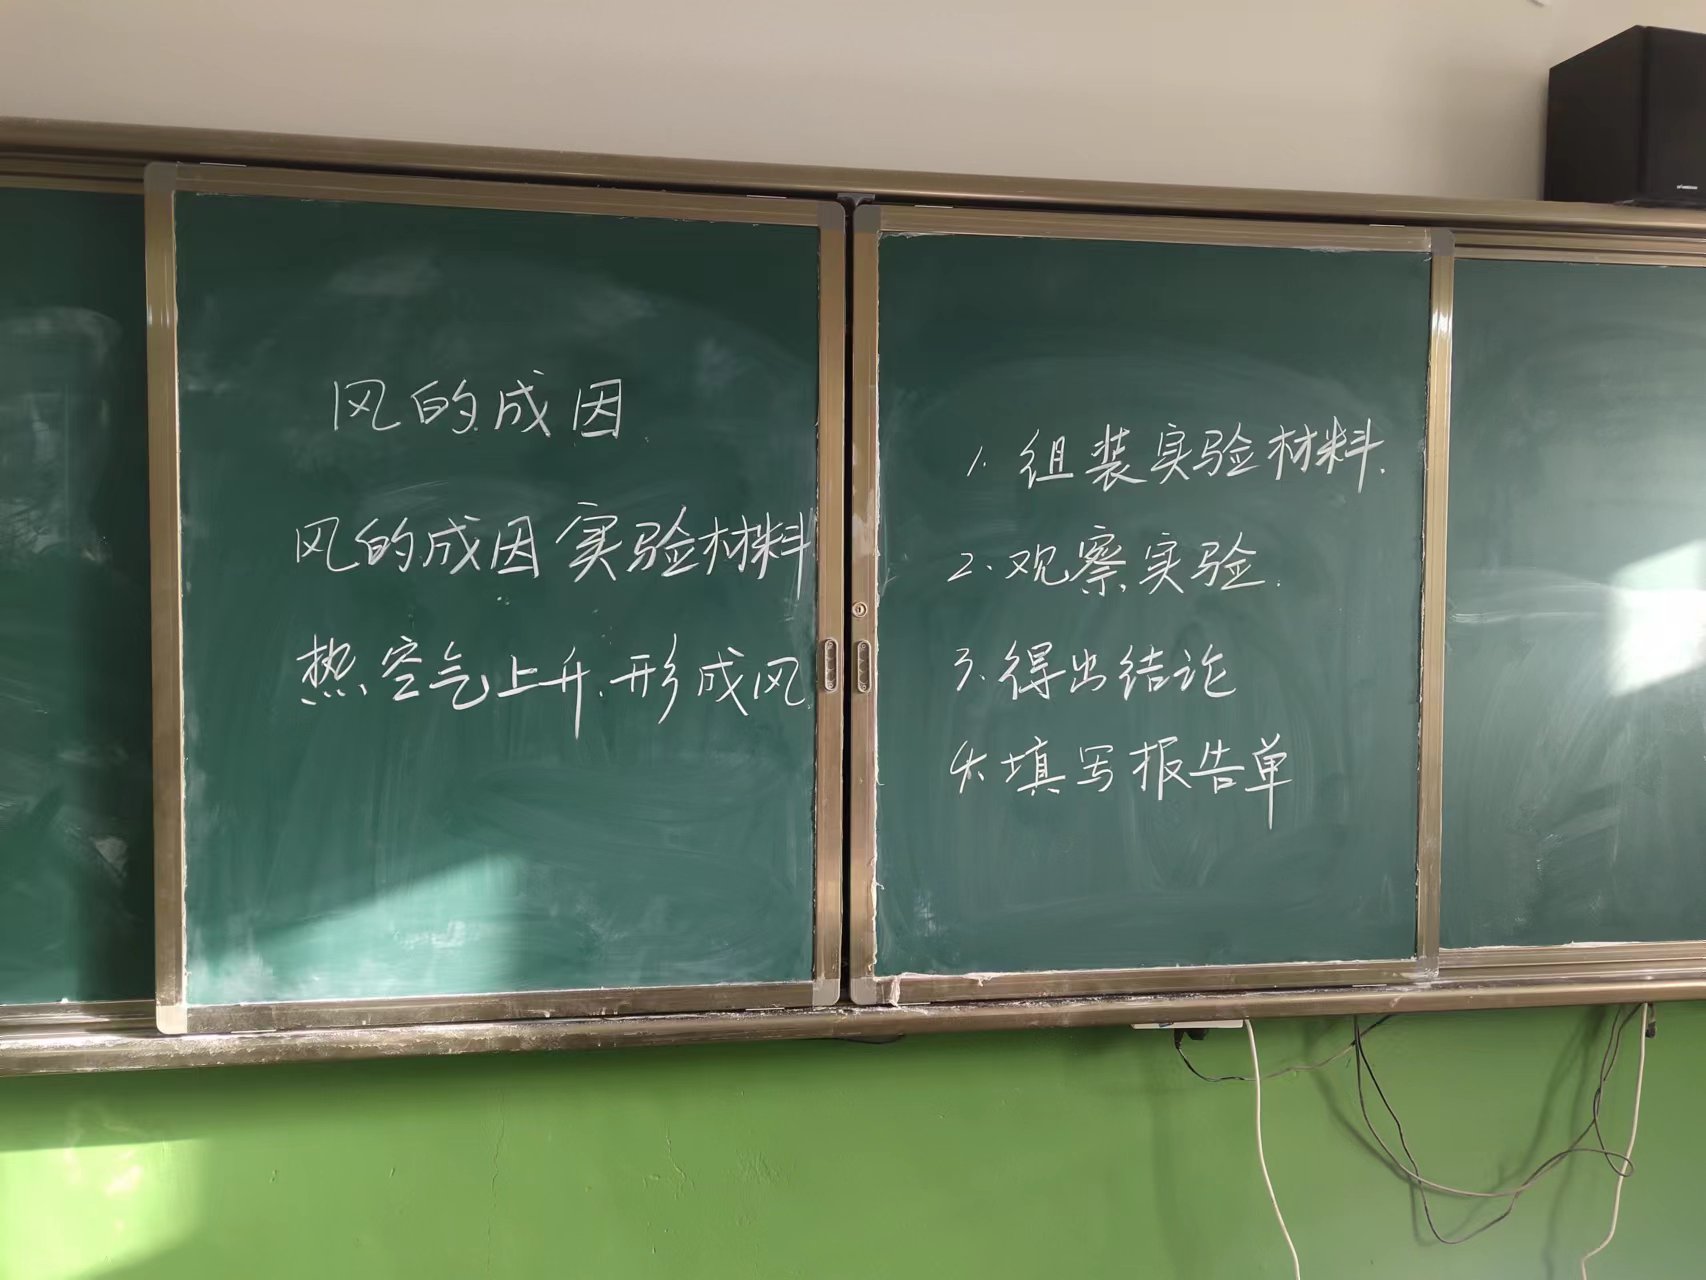 风的成因
风的成因实验材料
热空气上升.形成风.
1.组装实验材料.
2.观察实验.
3.得出结论
4.填写报告单